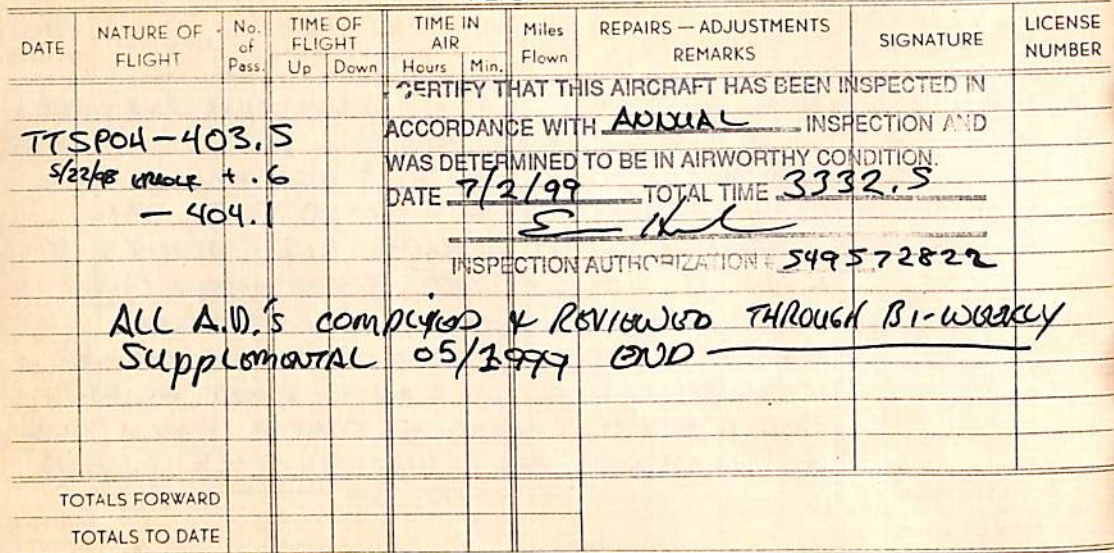 DATE NATURE OF FLIGHT No. of Pass. TIME OF FLIGHT Up Down TIME IN AIR Hours Min. Miles Flown REPAIRS — ADJUSTMENTS REMARKS SIGNATURE LICENSE NUMBER
CERTIFY THAT THIS AIRCRAFT HAS BEEN INSPECTED IN
ACCORDANCE WITH ANNUAL INSPECTION AND
TTSPOH - 403.5
WAS DETERMINED TO BE IN AIRWORTHY CONDITION.
5/22/98 + .6
DATE 7/2/99 TOTAL TIME 3332.5
- 404.1
INSPECTION AUTHORIZATION # 549572822
ALL A.D.'s COMPLYIED & REVIEWED THROUGH BI-WEEKLY
SUPPLEMENTAL 05/1999 END
TOTALS FORWARD
TOTALS TO DATE